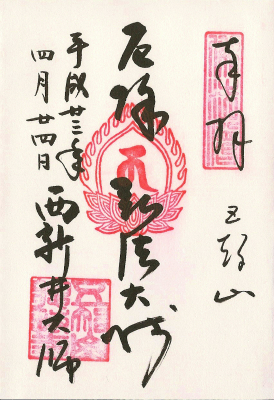 奉拝
五智山
厄除 弘法大師
平成廿三年
四月廿四日
西新井大師